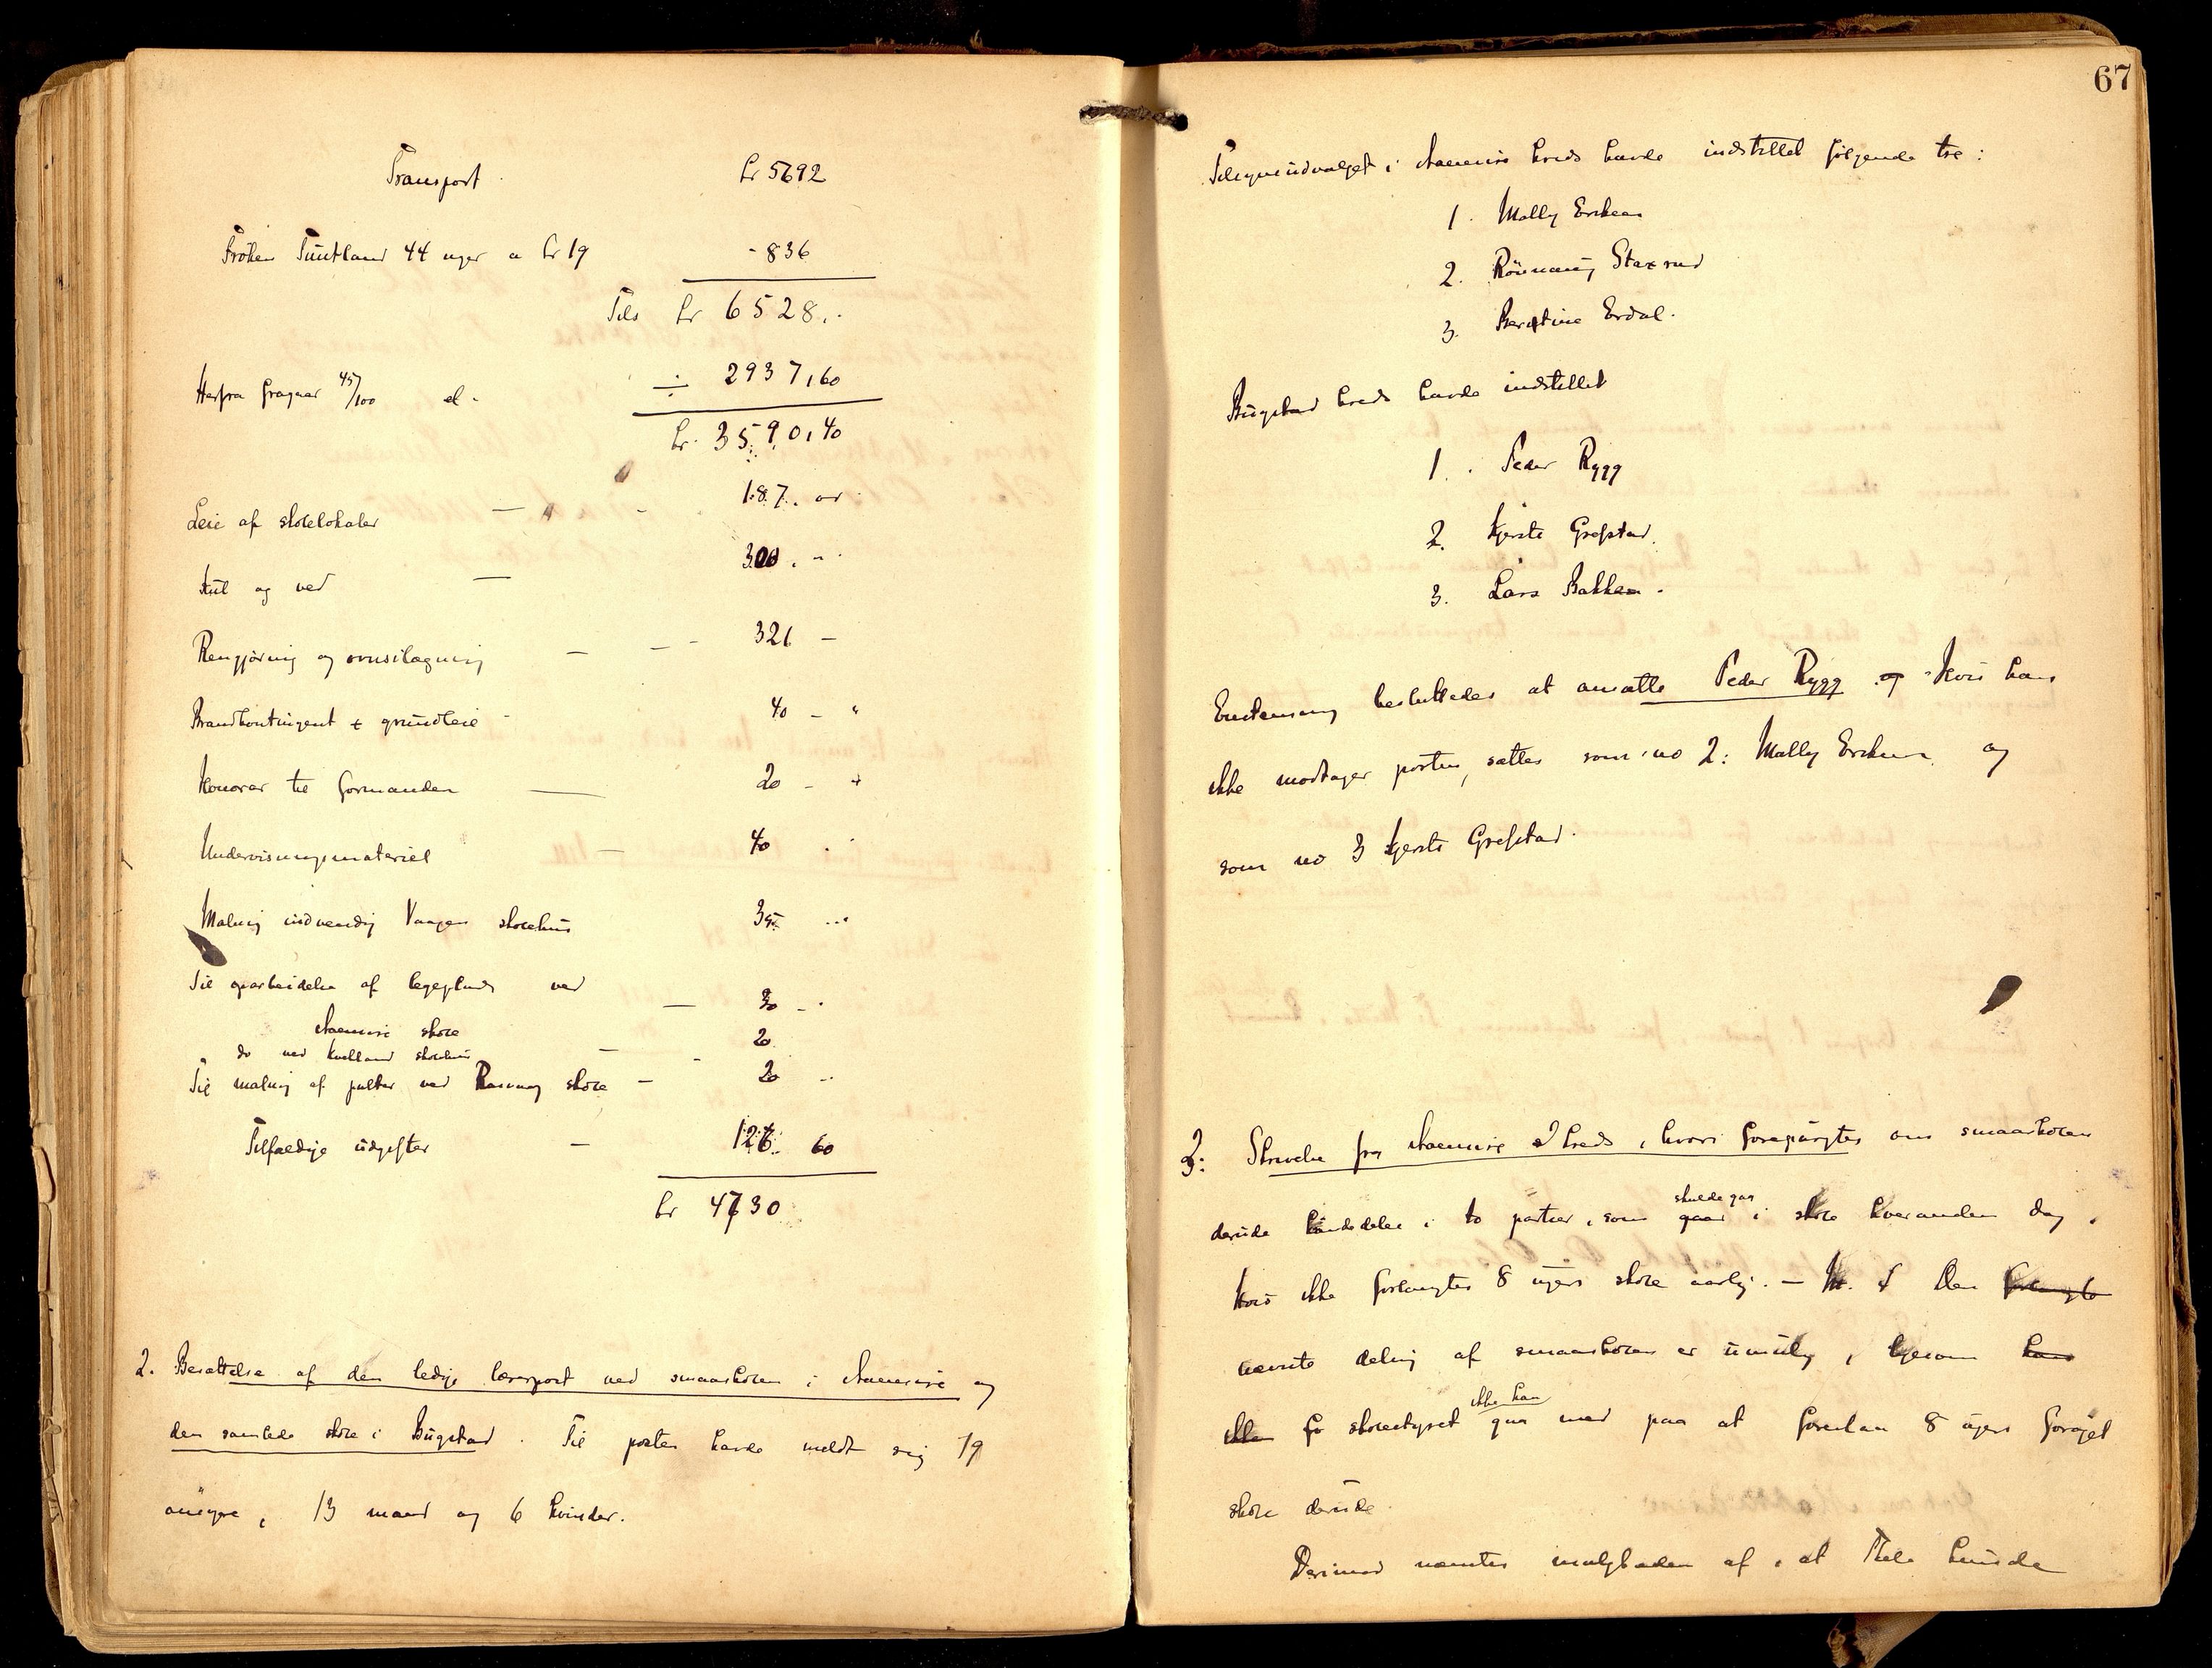 Transport Kr 5692
Frøken Tuntland 44 uger a kr 19 - 836
Tils Kr 6528.-
Herfra fragaar 45/100 el. ÷ 2937,60
Kr. 3590,40
Leie af skolelokaler — 187. -
Kul og ved — 300. -
Rengjøring og ovnsilægning — 321 -
Brandkontingent & grundleie - 40 - "
Honorar til formanden — 20 - "
Undervisningsmateriel — 40
Maling indvendig Vaagen skolehus 35
Til oparbeidelse af legeplads ved — 30 -
skole 20
do ved Kvelland skolehus —
Til maling af pulter ved skole — 20
Tilfældige udgifter — 126 60
Kr 4730
2. Besættelse af den ledige lærerpost ved smaaskolen i og
den samlede skole i Bugstad. Til posten havde meldt sig 19
ansøgere, 13 mænd og 6 kvinder.
67
Tilsynsudvalget i kreds havde indstillet følgende tre:
1. Mally Eriksen
2. Rønnaug Staxrud
3. Berntine Erdal.
Bugstad kreds havde indstillet
1. Peder Rygg
2. Kjersti Grefstad.
3. Lars Bakken.
Enstemmig besluttedes at ansætte Peder Rygg og hvis han
ikke modtager posten, sættes som no 2: Mally Eriksen og
som no 3 Kjersti Grefstad.
3: Skrivelse fra kreds, hvori forespørges om smaaskolen
deroude kunde deles i to partier, som skulde gaa gaar i skole hveranden dag,
hvis ikke forlanges 8 ugers skole aarlig. — Den
nævnte deling af smaaskolen er umulig, ligesom kan
ikke skolestyret ikke kan gaa med paa at 8 ugers forøget
skole derude.
Derimod nævntes muligheden af, at kunde